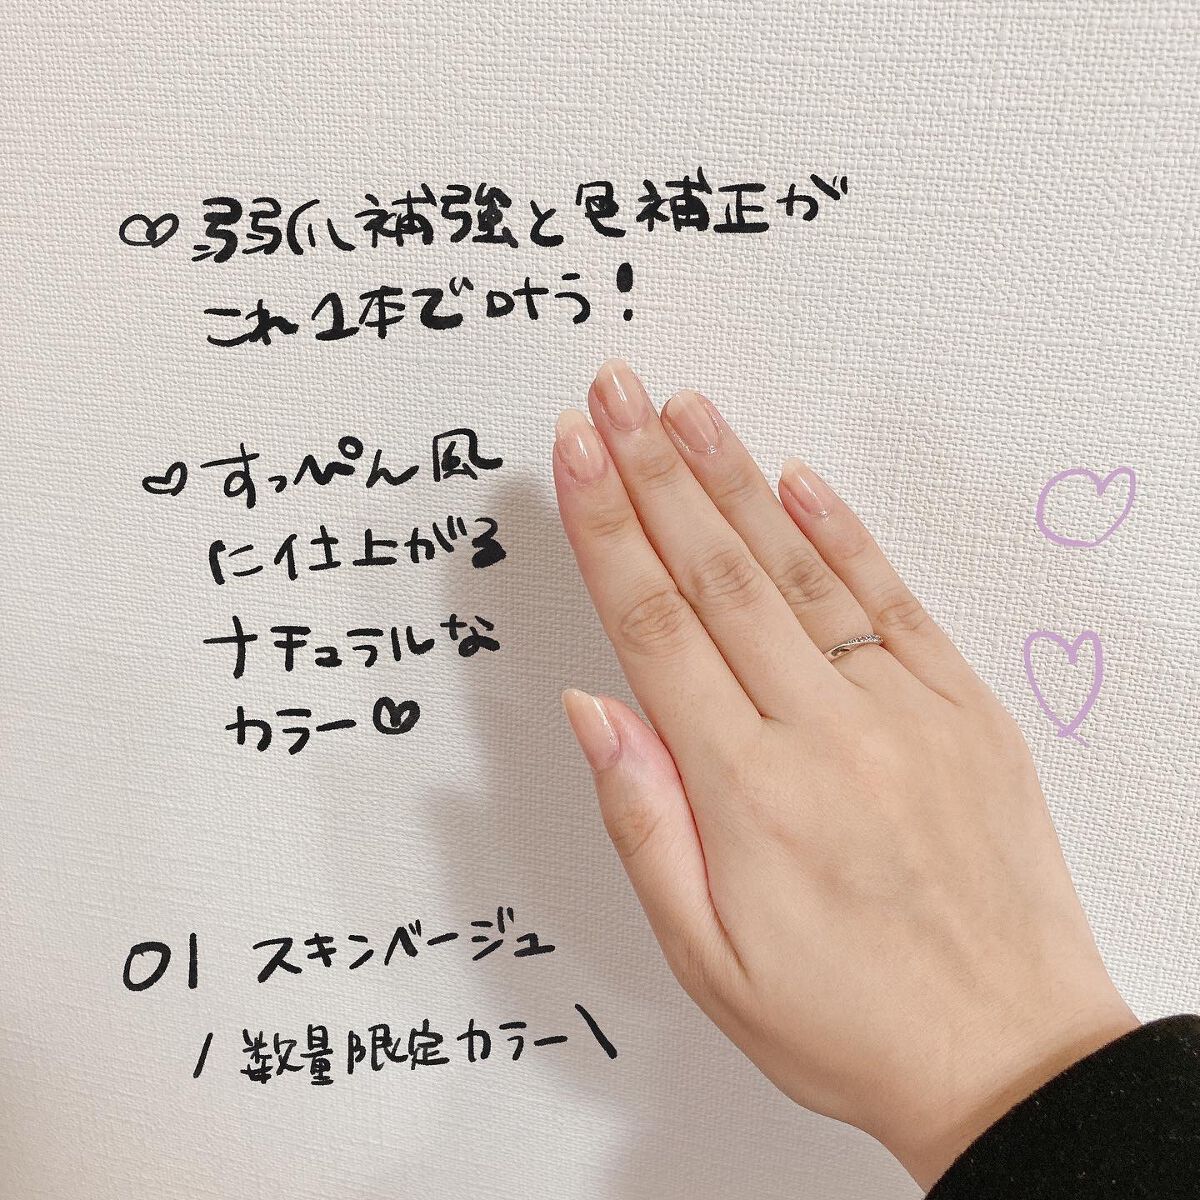 ♡弱爪補強と色補正が
これ1本で叶う!
♡すっぴん風
に仕上がる
ナチュラルな
カラー♡
01 スキンベージュ
/数量限定カラー\